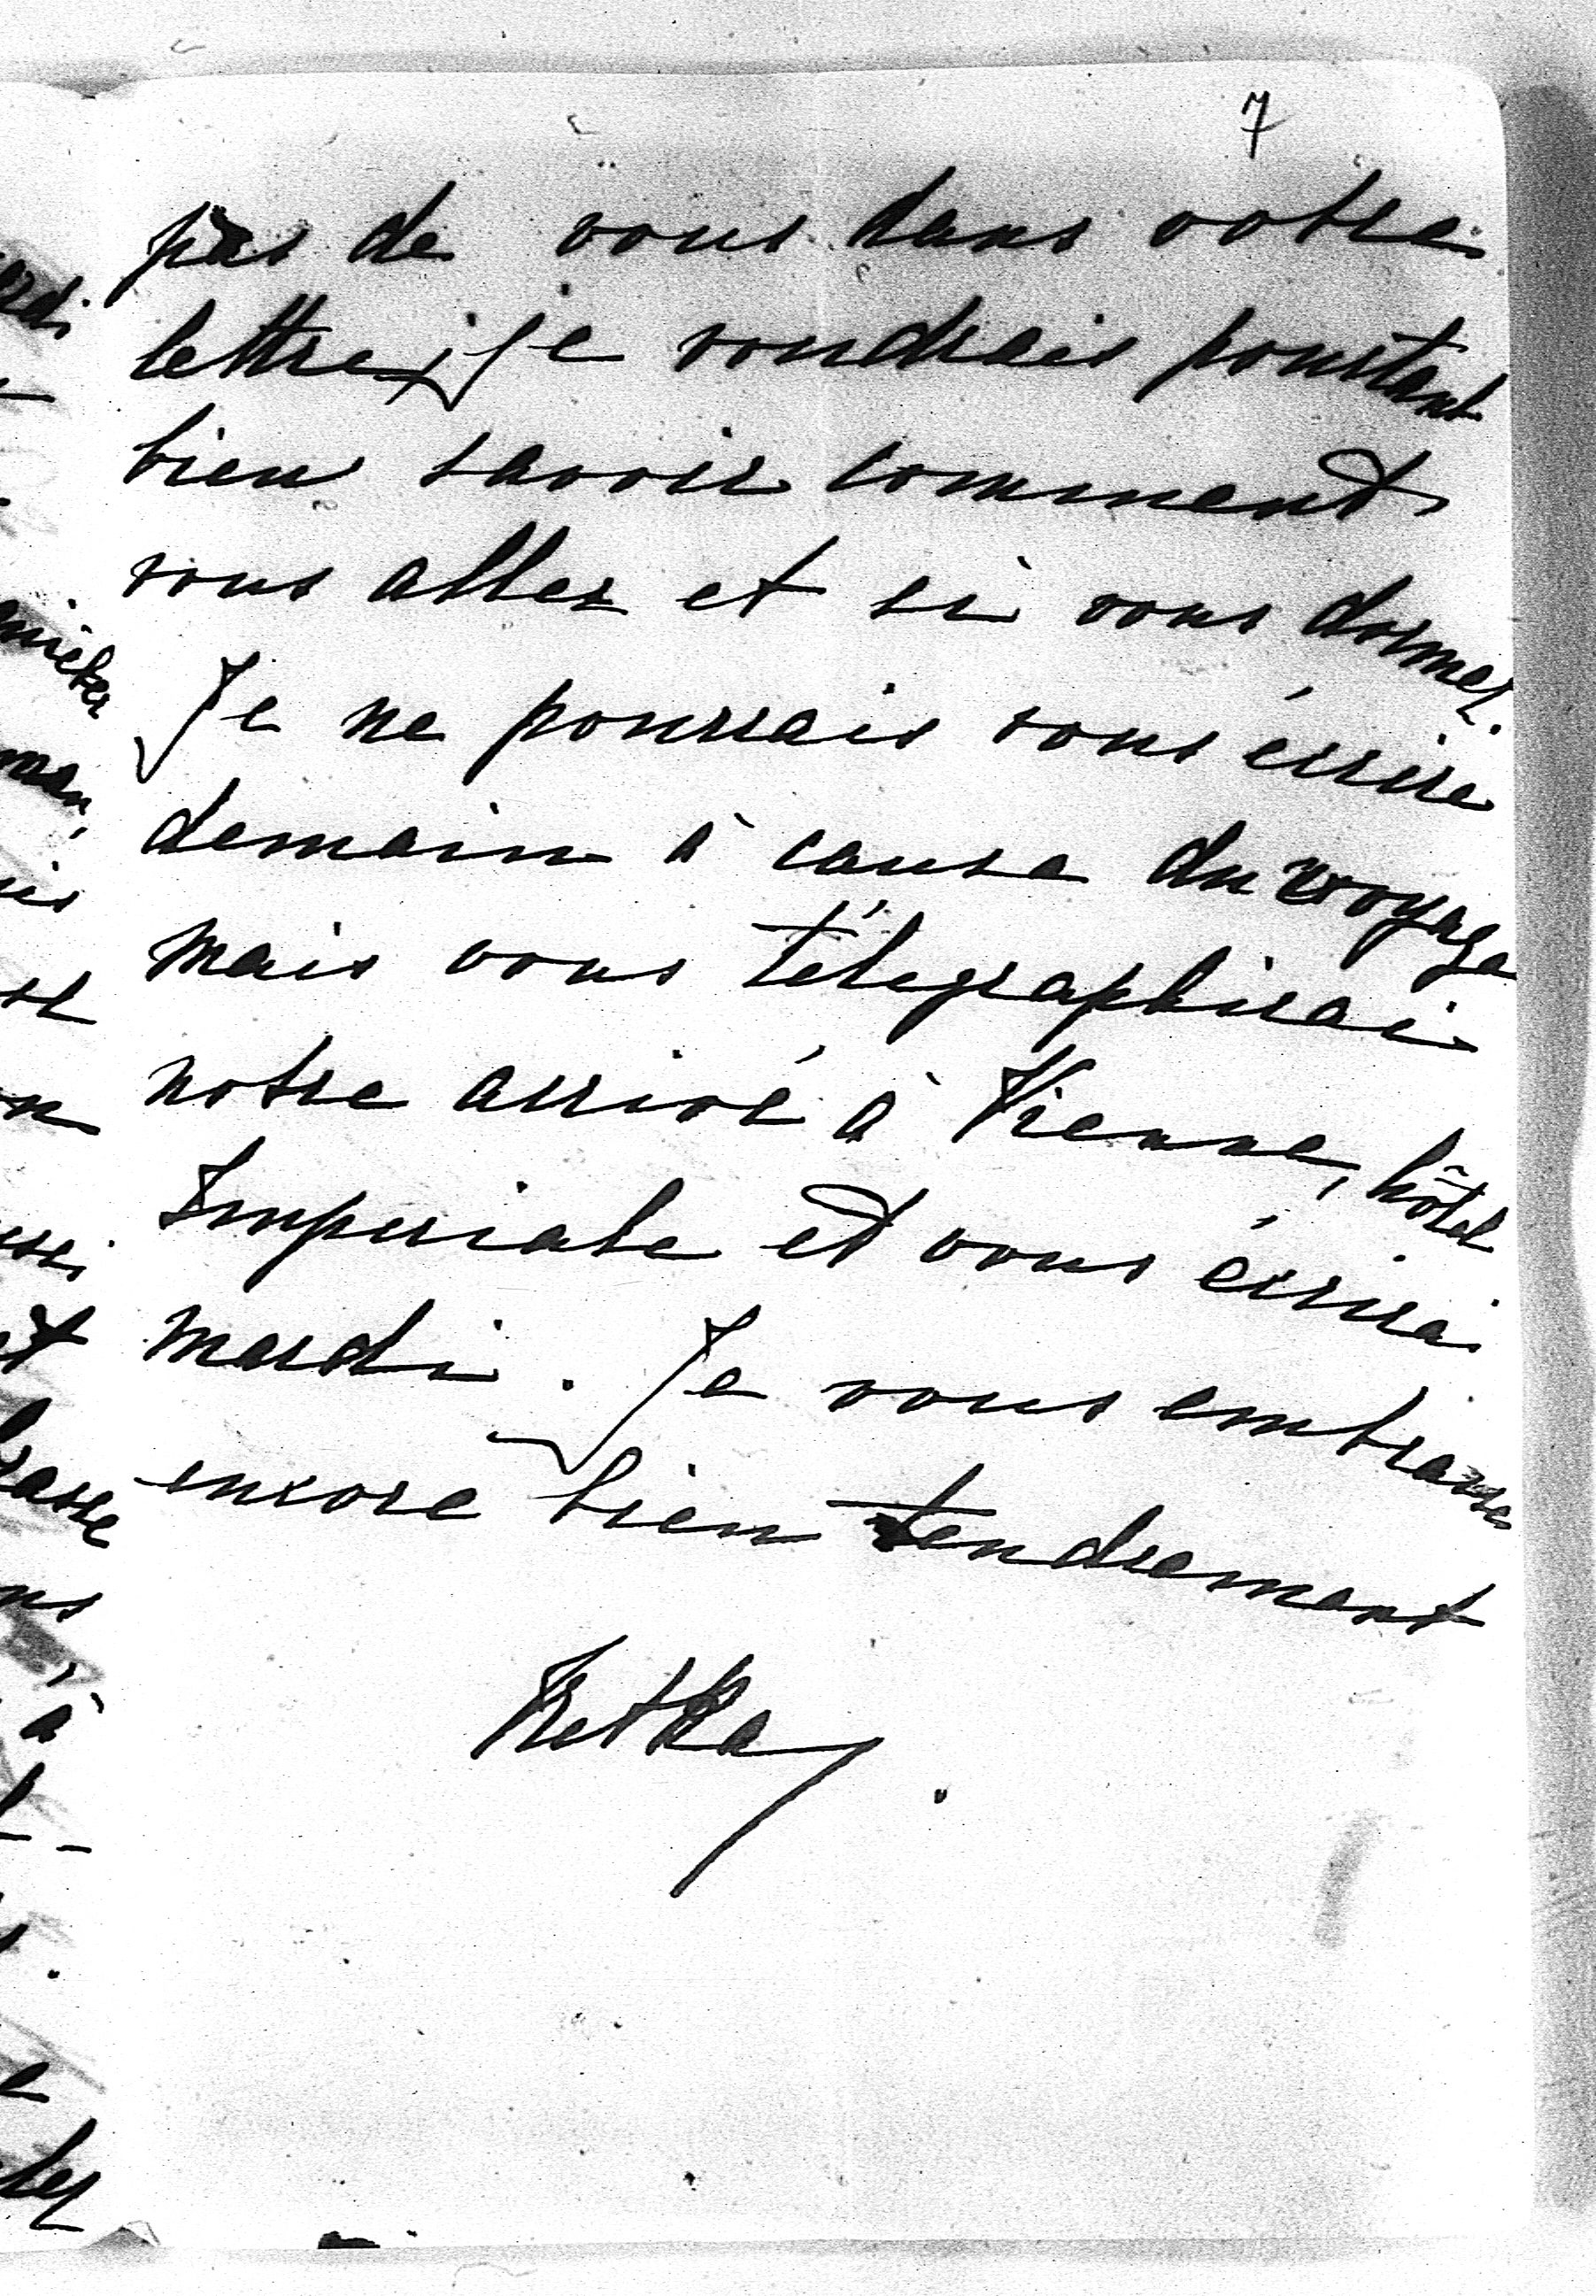 7
pas de vous dans votre
lettre, je voudrais pourtant
bien savoir comment
vous allez et si vous dormez.
Je ne pourrais vous écrire
demain à cause du voyage
mais vous télégraphirai
notre arrivé à Vienne, hôtel
Imperiale et vous écrirai
mardi. Je vous embrasse
encore bien tendrement